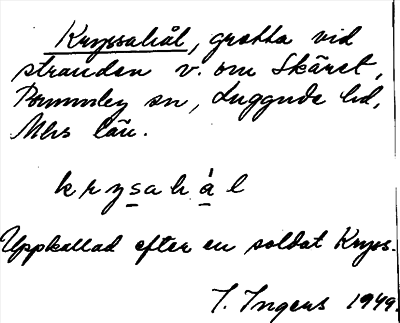 Kryssahål, grotta vid
stranden v. om Skäret,
Brunnby sn, Luggude hd,
Mhs län.
krysahål
Uppkallad efter en soldat Kryss.
J. Ingers 1949.